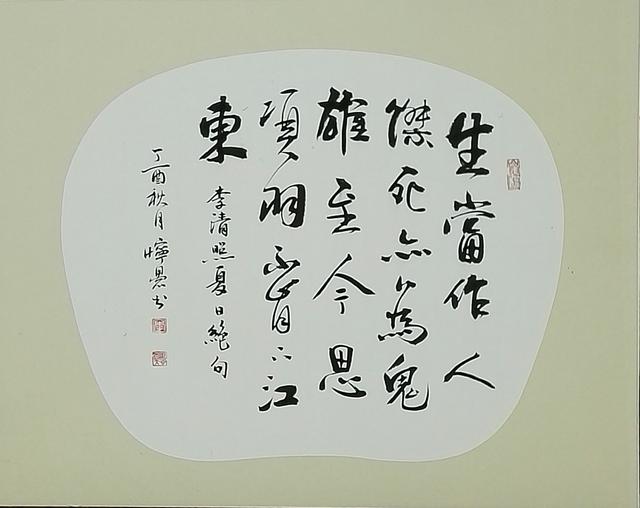 生當作人
傑死亦為鬼
雄至今思
項羽不肯江
東
李清照夏日絕句
丁酉秋月書